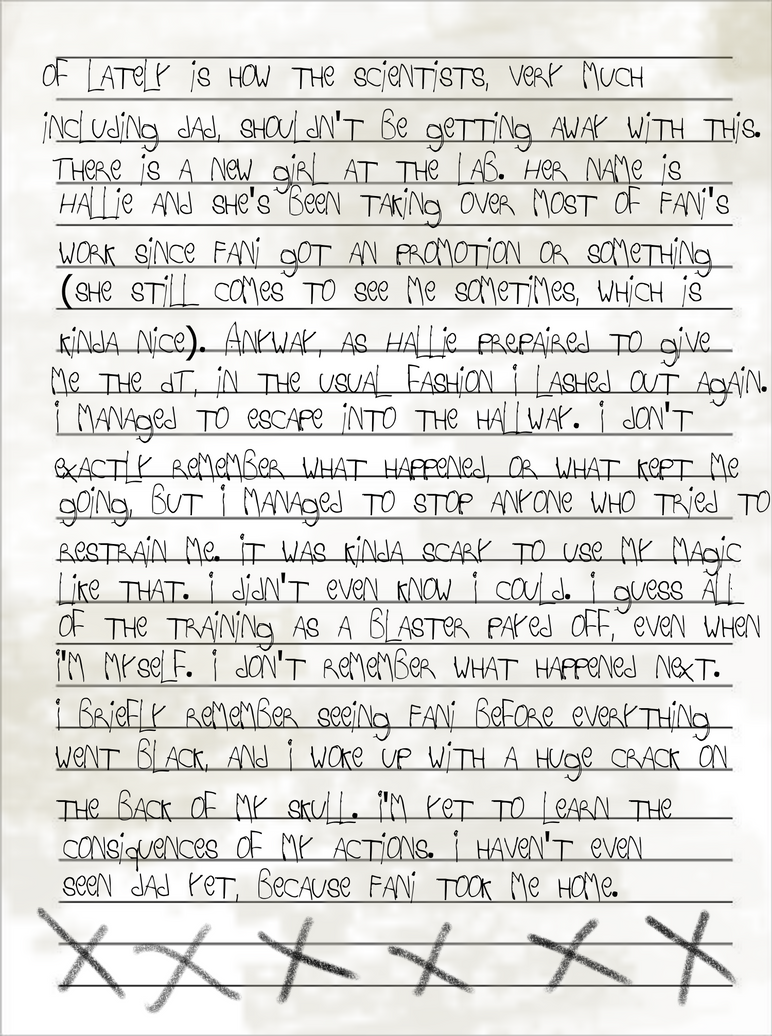 OF LATELY is HOW THE SCIENTISTS, VERY MUCH
iNCLUdiNg dAd, SHOULDN'T BE gETTiNg AWAY WiTH THiS.
THERE iS A NEW giRL AT THE LAB. HER NAME iS
HALLiE AND SHE'S BEEN TAKiNg OVER MOST OF FANi'S
WORK SiNCE FANi gOT AN PROMOTiON OR SOMETHiNg
(SHE STiLL COMES TO SEE ME SOMETiMES, WHiCH iS
KiNDA NiCE). ANYWAY, AS HALLiE PREPAiREd TO giVE
ME THE dT, iN THE USUAL FASHiON i LASHEd OUT AgAiN.
i MANAgEd TO ESCAPE iNTO THE HALLWAY. i dON'T
EXACTLY REMEMBER WHAT HAPPENEd, OR WHAT KEPT ME
gOiNg, BUT i MANAgEd TO STOP ANYONE WHO TRiEd TO
RESTRAiN ME. iT WAS KiNDA SCARY TO USE MY MAgiC
LiKE THAT. i didN'T EVEN KNOW i COULd. i gUESS ALL
OF THE TRAiNiNg AS A BLASTER PAYEd OFF, EVEN WHEN
i'M MYSELF. i dON'T REMEMBER WHAT HAPPENEd NEXT.
i BRiEFLY REMEMBER SEEiNg FANi BEFORE EVERYTHiNg
WENT BLACK, ANd i WOKE UP WiTH A HUgE CRACK ON
THE BACK OF MY SKULL. i'M YET TO LEARN THE
CONSiqUENCES OF MY ACTiONS. i HAVEN'T EVEN
SEEN dAd YET, BECAUSE FANi TOOK ME HOME.
X X X X X X